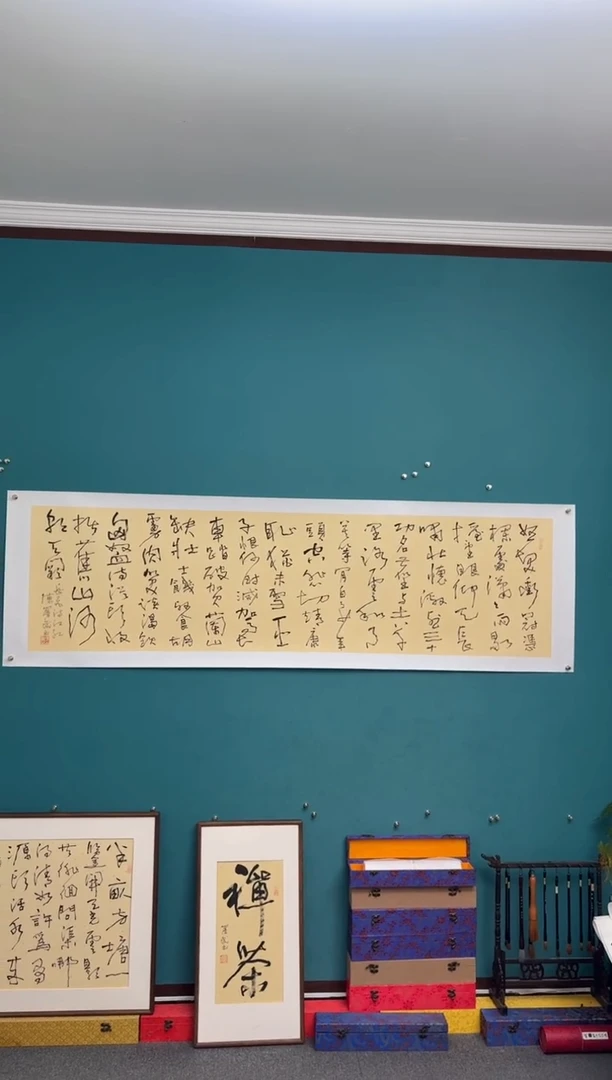 怒髮衝冠憑
欄處瀟瀟雨歇
抬望眼仰天長
嘯壯懷激烈三十
功名塵與土八千
里路雲和月
莫等閒白了少年
頭空悲切靖康
恥猶未雪臣
子恨何時滅駕長
車踏破賀蘭山
缺壯士饑餐胡
虜肉笑談渴飲
匈奴血待從頭收
拾舊山河
朝天闕
岳飛滿江紅
半畝方塘一
鑑開天光雲影
共徘徊問渠哪
得清如許為有
源頭活水來
禪茶